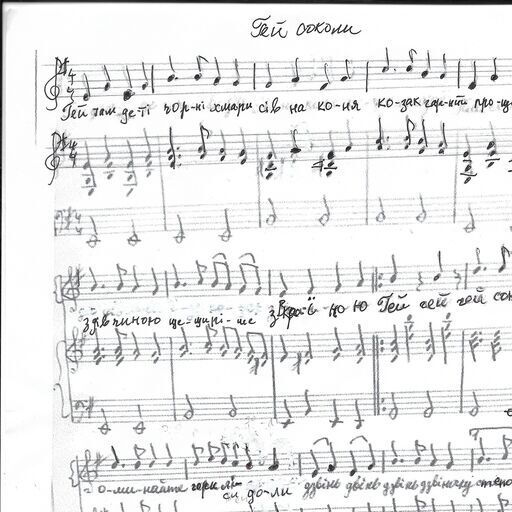 Гей соколи
Гей там де-ті чор-ні хмари сів на ко-ня ко-зак гар-ний про-щ
з дівчиною ще-щині-ше з Враї-но ю Гей гей гей сок
о-ми-найте гори ліси до-ли дзвінь дзвінь дзвінь дзвіночку степо